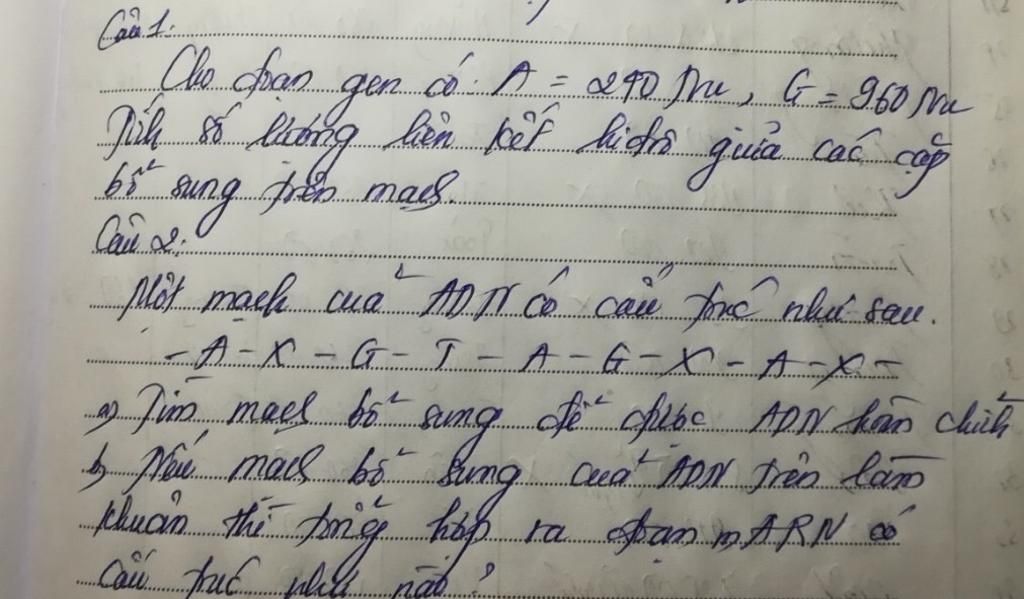 Câu 1:
Cho đoạn gen có A = 240 Nu, G = 960 Nu
Tính số lượng liên kết hiđrô giữa các cặp
bổ sung trên mạch.
Câu 2:
Một mạch của ADN có cấu trúc như sau.
- A - X - G - T - A - G - X - A - X -
a) Tìm mạch bổ sung để được ADN hoàn chỉnh
b) Nếu mạch bổ sung của ADN trên làm
khuân thì tổng hợp ra đoạn mARN có
cấu trúc như nào?